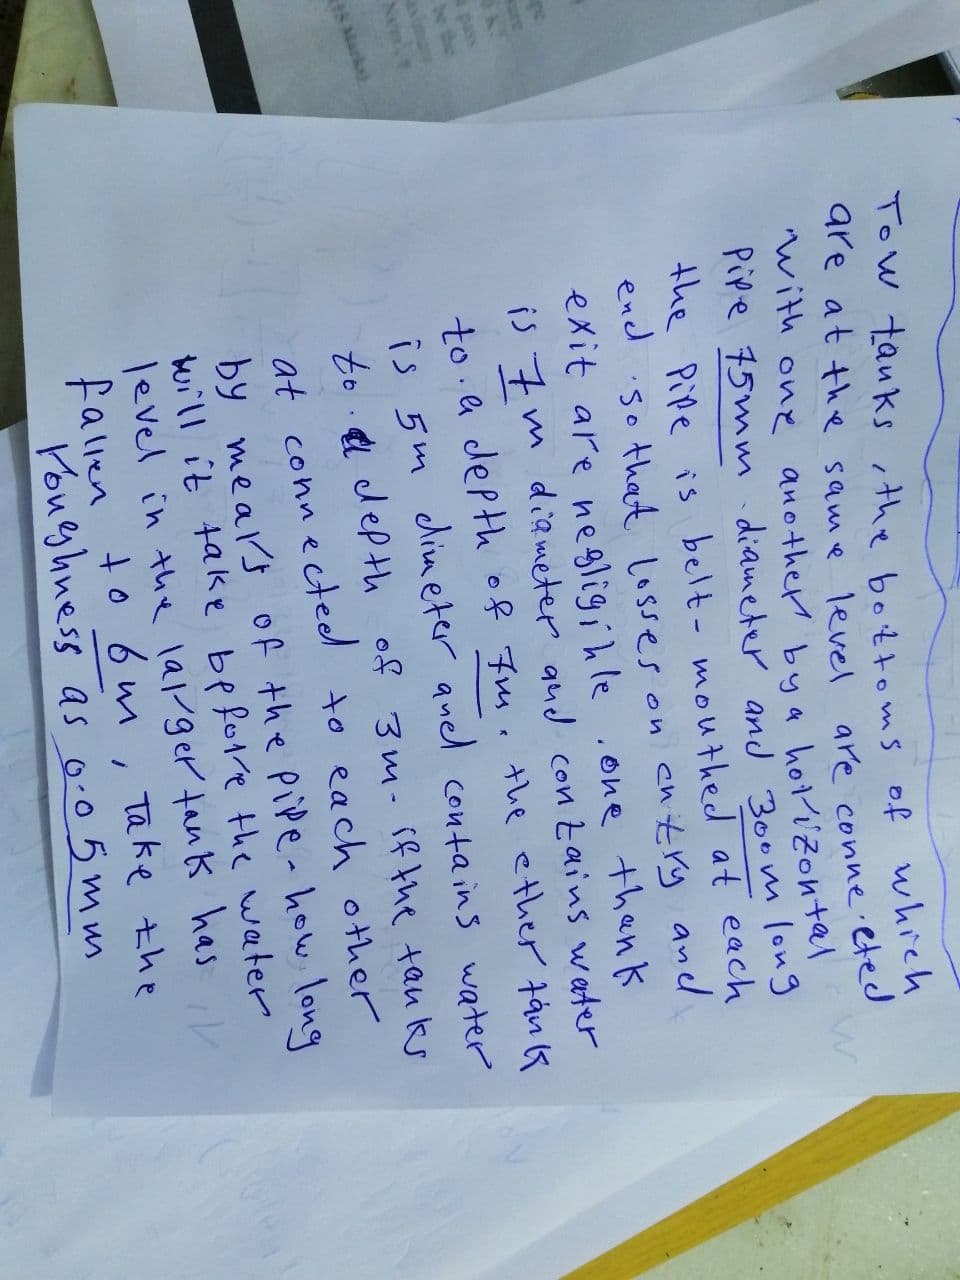 Tow tanks, the bottoms of which
are at the same level are conne.cted
with one another by a horizontal
Pipe 75mm .diameter and 300m long
the Pipe is belt-mouthed at each
end .so that losses on entry and
exit are negligible .one thank
is 7m diameter and contains water
to.a depth of 7m. the ether tank
is 5m dimeter and contains water
to.a depth of 3m. if the tanks
at connected to each other
by means of the pipe. how long
will it take before the water
level in the larger tank has
fallen to 6m, Take the
roughness as 0.05mm